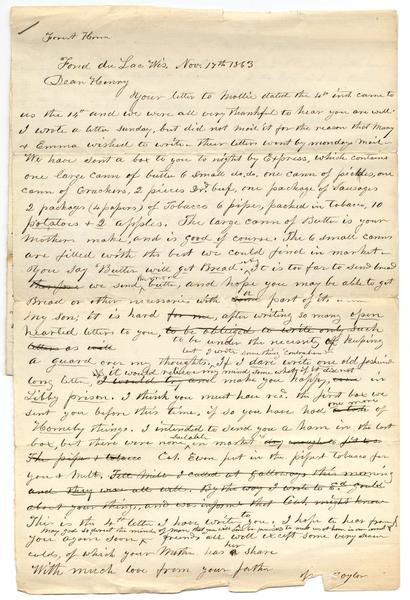 Forest Home
Fond du Lac, Wis. Nov. 17th 1863
Dear Henry
Your letter to Mollie dated the 4th inst came to
us the 14th and we were all very thankful to hear you are well.
I wrote a letter Sunday, but did not mail it for the reason that Mary
& Emma wished to write – their letters went by monday mail –
We have sent a box to you to night by Express, which contains
one large cann of butter 6 Small do, do, one cann of pickles, one
cann of Crackers, 2 pieces Dr. beef, one package of Sausages
2 packages (4 papers) of Tobacco 6 pipes, packed in tobacco, 10
potatoes & 2 apples. The large cann of Butter is your
Mothers make, and is good of course. The 6 small canns
are filled with the best we could find in market –
You Say "Butter will get Bread". It is too far to send bread
therefore we send butter, and hope you may be able to get
Bread or other necessaries with a part of it. –
my Son; it is hard for me, after writing so many open
hearted letters to you, to be obliged to write only such
to be under the necessity of keeping
letter as will
but I write something contraband
a guard over my thoughts, If I dare write one old fashioned
long letter, it would relieve my mind some what if it did not
I would try and make you happy, in
Libby prison. I think you must have rec'd. the first box we
sent you before this time, if so you have had one more
of Homely things. I intended to send you a ham in the last
box, but there were none suitable in market
The pipes & tobacco Cal. Ewen put in the pipes tobacco for
you & Milt. Till Milt I called at Galloways this morning
and they were all well. By the way I wrote to Ed
about your things, and
This is the 4th letter I have written to you. I hope to hear from
you again soon & friends all well except some very sever
colds, of which your Mother has her share
With much love from your father
Taylor